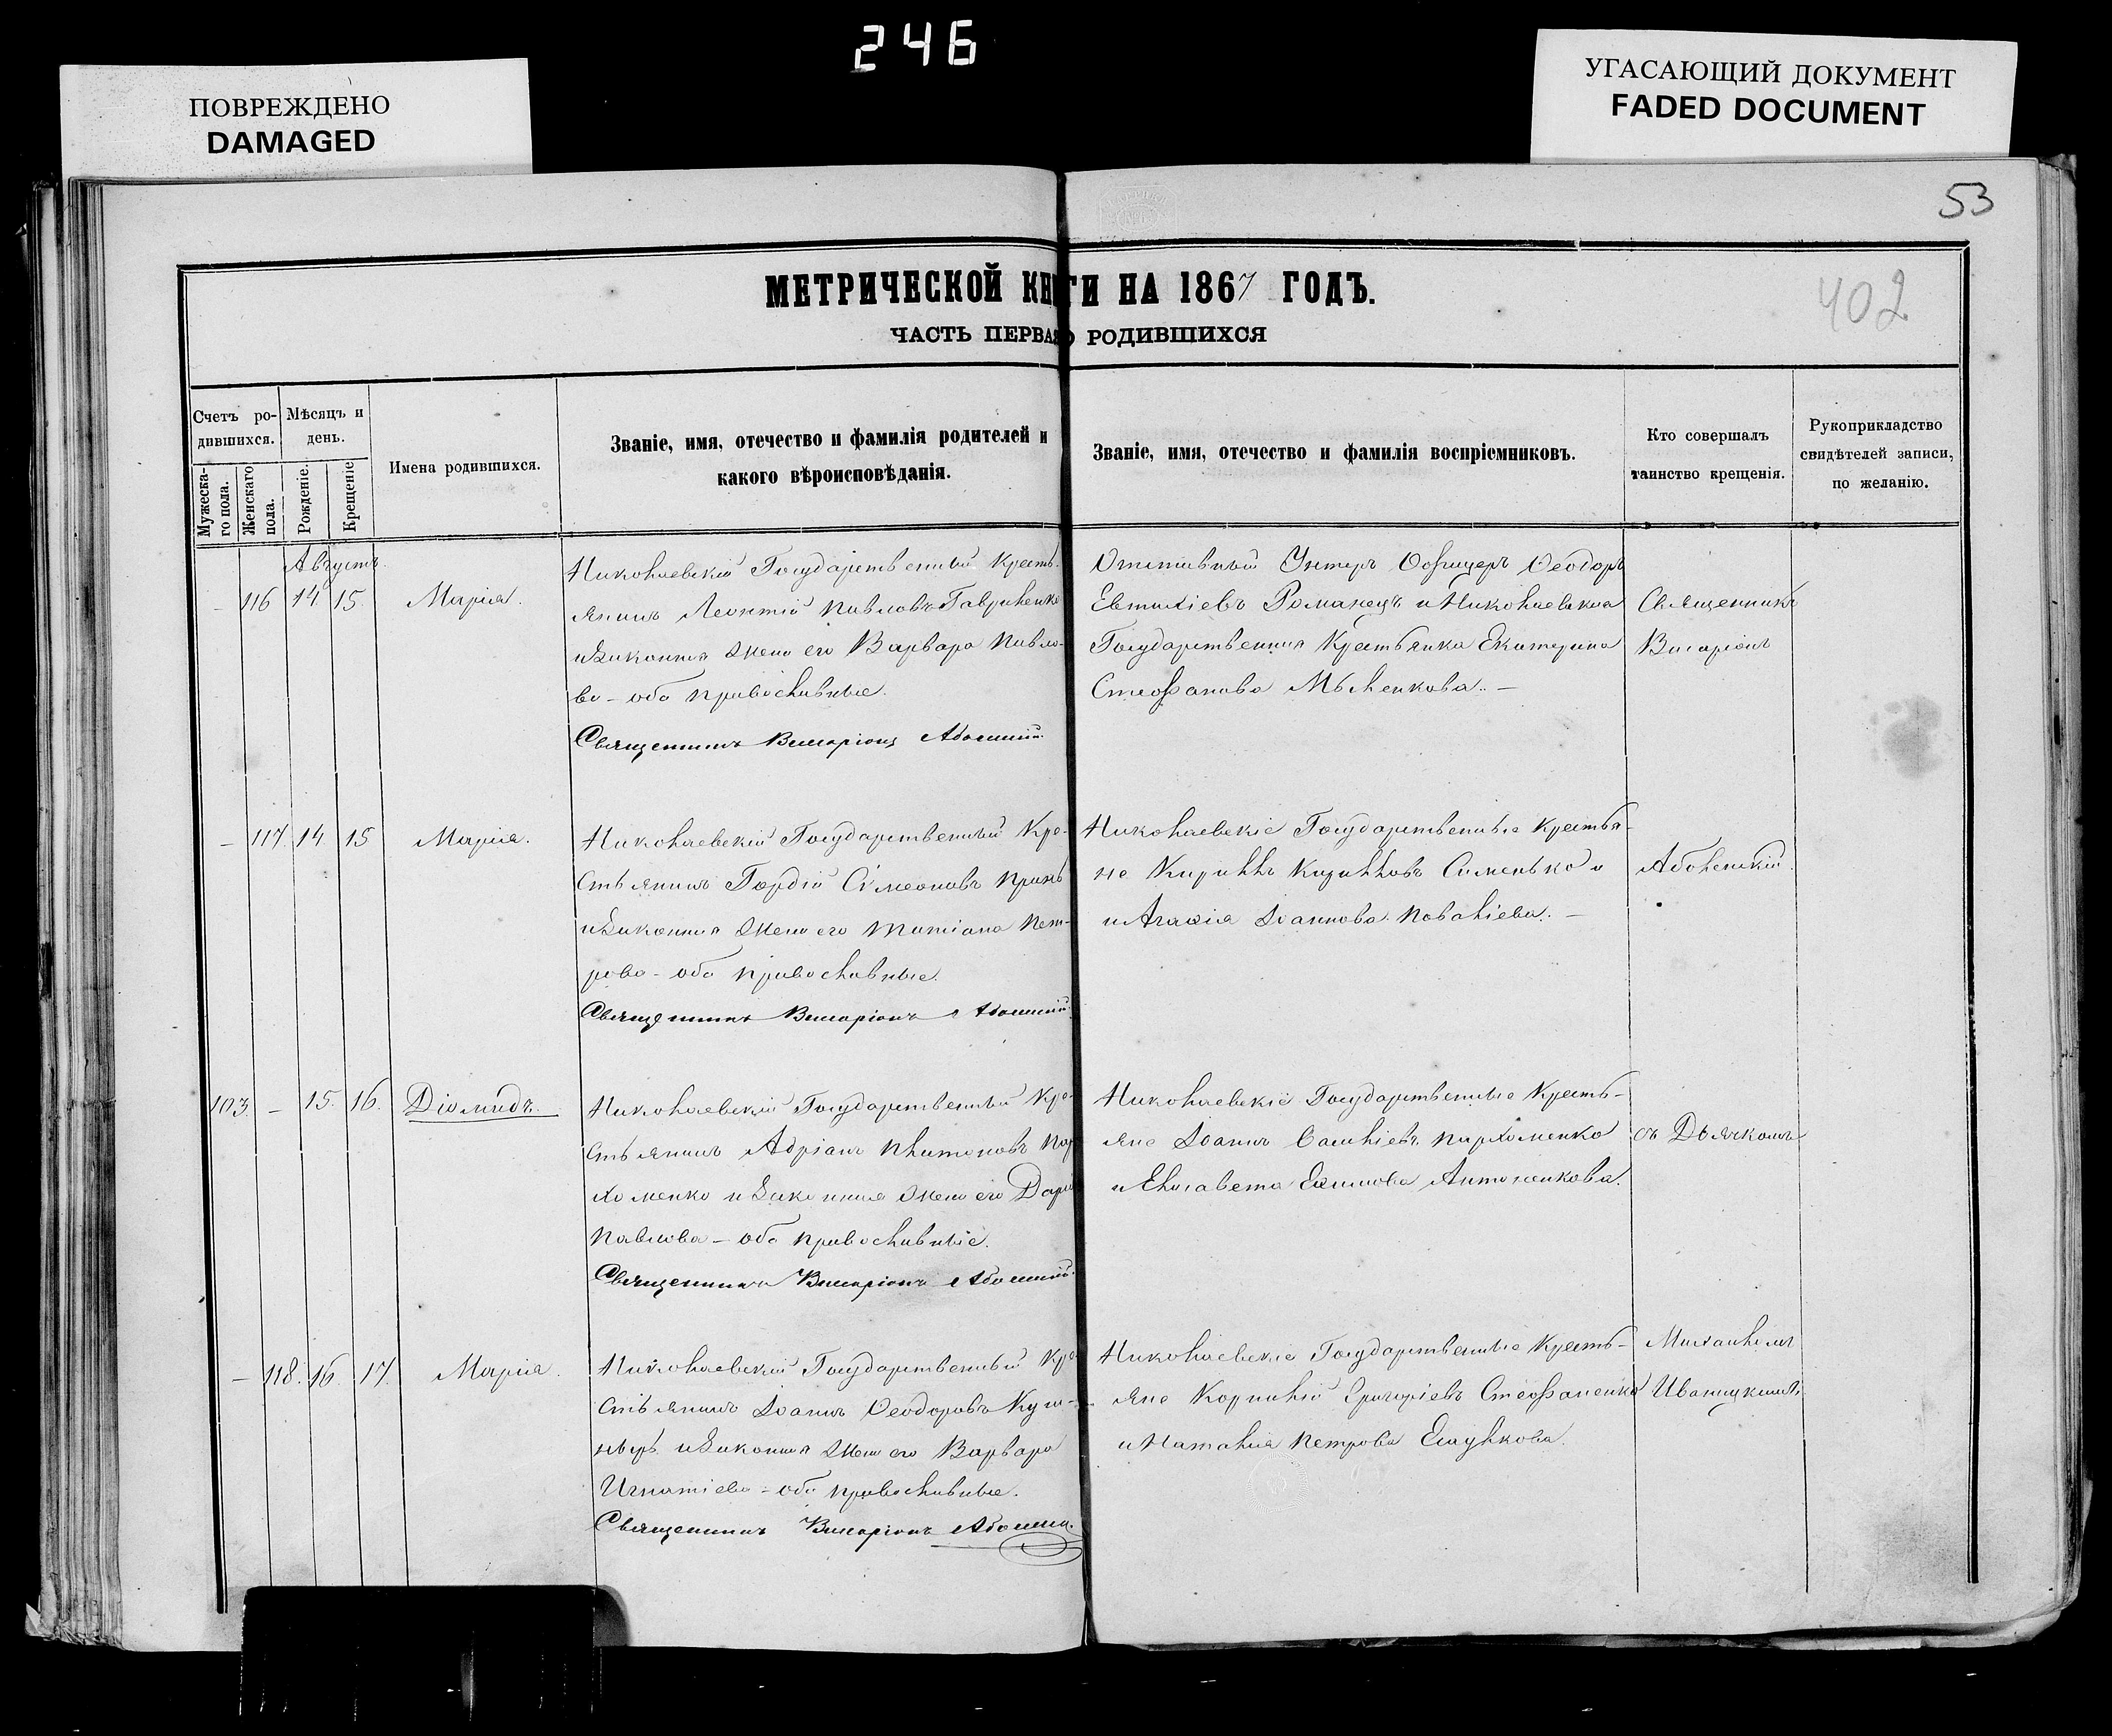 246
ПОВРЕЖДЕНО
DAMAGED
УГАСАЮЩИЙ ДОКУМЕНТ
FADED DOCUMENT
53
МЕТРИЧЕСКОЙ КНИГИ НА 1867 ГОДЪ.
402
ЧАСТЬ ПЕРВАЯ О РОДИВШИХСЯ
Счетъ ро-
дившихся.
Мужеска-
го пола.
Женскаго
пола.
Мѣсяцъ и
день.
Рожденіе.
Крещеніе
Имена родившихся.
Званіе, имя, отечество и фамилія родителей и
какого вѣроисповѣданія.
Званіе, имя, отечество и фамилія воспріемниковъ.
Кто совершалъ
таинство крещенія.
Рукоприкладство
свидѣтелей записи,
по желанію.
Августъ
– 116 14 15. Марія.
Николаевскій Государственный Кресть-
янинъ Леонтій Павловъ Гавриленко
и Законная Жена его Варвара Павло-
ва – оба православные.
Священникъ Виссаріонъ
Отставный Унтеръ Офицеръ Ѳеодоръ
Евтихіевъ Романецъ и Николаевская
Государственная Крестьянка Екатерина
Стефанова –
Священникъ
Висаріонъ
– 117. 14 15 Марія.
Николаевскій Государственный Кре-
стьянинъ Гордій Сімеоновъ
и Законная Жена его Татіана Пет-
рова – оба православные.
Священникъ Виссаріонъ
Николаевскіе Государственные Крестья-
не Кириллъ Кирилловъ Сименько и
и Агафія Іоаннова –
103. – 15. 16. Діомидъ.
Николаевскій Государственный Кре-
стьянинъ Адріанъ Платоновъ Пар
хоменко и Законная Жена его Дарі
Павлова – оба православные.
Священникъ Виссаріонъ
Николаевскіе Государственные Кресть-
яне Іоаннъ Пархоменко
и Елисавета Антоненкова.
съ Дьячкомъ
– 118. 16. 17. Марія.
Николаевскій Государственный Кре
стьянинъ Іоаннъ Ѳеодоровъ Куш-
ниръ и Законная Жена его Варвара
Игнатіева – оба православные.
Священникъ Виссаріонъ
Николаевскіе Государственные Кресть-
яне Корнилій Григоріевъ Стефаненко
и Наталія Петрова
Михаиломъ